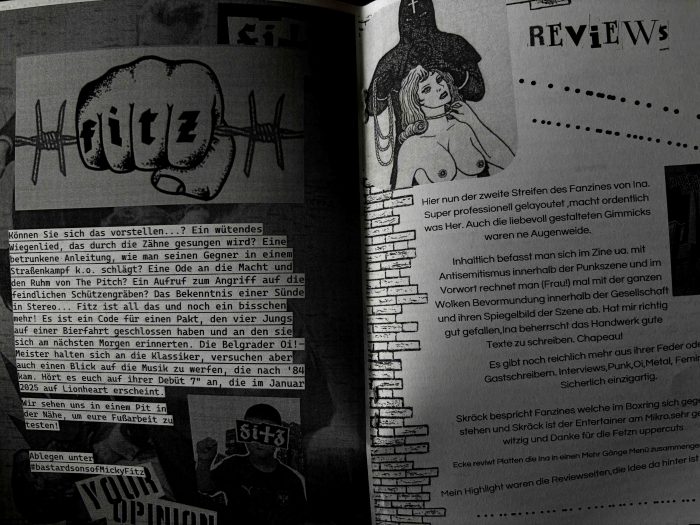 fitz
Können Sie sich das vorstellen...? Ein wütendes
Wiegenlied, das durch die Zähne gesungen wird? Eine
betrunkene Anleitung, wie man seinen Gegner in einem
Straßenkampf k.o. schlägt? Eine Ode an die Macht und
den Ruhm von The Pitch? Ein Aufruf zum Angriff auf die
feindlichen Schützengräben? Das Bekenntnis einer Sünde
in Stereo... Fitz ist all das und noch ein bisschen
mehr! Es ist ein Code für einen Pakt, den vier Jungs
auf einer Bierfahrt geschlossen haben und an den sie
sich am nächsten Morgen erinnerten. Die Belgrader Oi!-
Meister halten sich an die Klassiker, versuchen aber
auch einen Blick auf die Musik zu werfen, die nach '84
kam. Hört es euch auf ihrer Debüt 7" an, die im Januar
2025 auf Lionheart erscheint.
Wir sehen uns in einem Pit in
der Nähe, um eure Fußarbeit zu
testen!
Ablegen unter
#bastardsonsofMickyFitz
fitz
YOUR
OPINION
REViEWs
Hier nun der zweite Streifen des Fanzines von Ina.
Super professionell gelayoutet ,macht ordentlich
was Her. Auch die liebevoll gestalteten Gimmicks
waren ne Augenweide.
Inhaltlich befasst man sich im Zine ua. mit
Antisemitismus innerhalb der Punkszene und im
Vorwort rechnet man (Frau!) mal mit der ganzen
Wolken Bevormundung innerhalb der Gesellschaft
und ihren Spiegelbild der Szene ab. Hat mir richtig
gut gefallen,Ina beherrscht das Handwerk gute
Texte zu schreiben. Chapeau!
Es gibt noch reichlich mehr aus ihrer Feder oder
Gastschreibern, Interviews,Punk,Oi,Metal,
Sicherlich einzigartig.
Skröck bespricht Fanzines welche im Boxring sich
stehen und Skröck ist der Entertainer am Mikro,sehr
witzig und Danke für die Fetzn uppercuts
Ecke reviwt Platten die Ina in einen Mehr Gänge Menü
Mein Highlight waren die Reviewseiten,die Idee da hinter ist